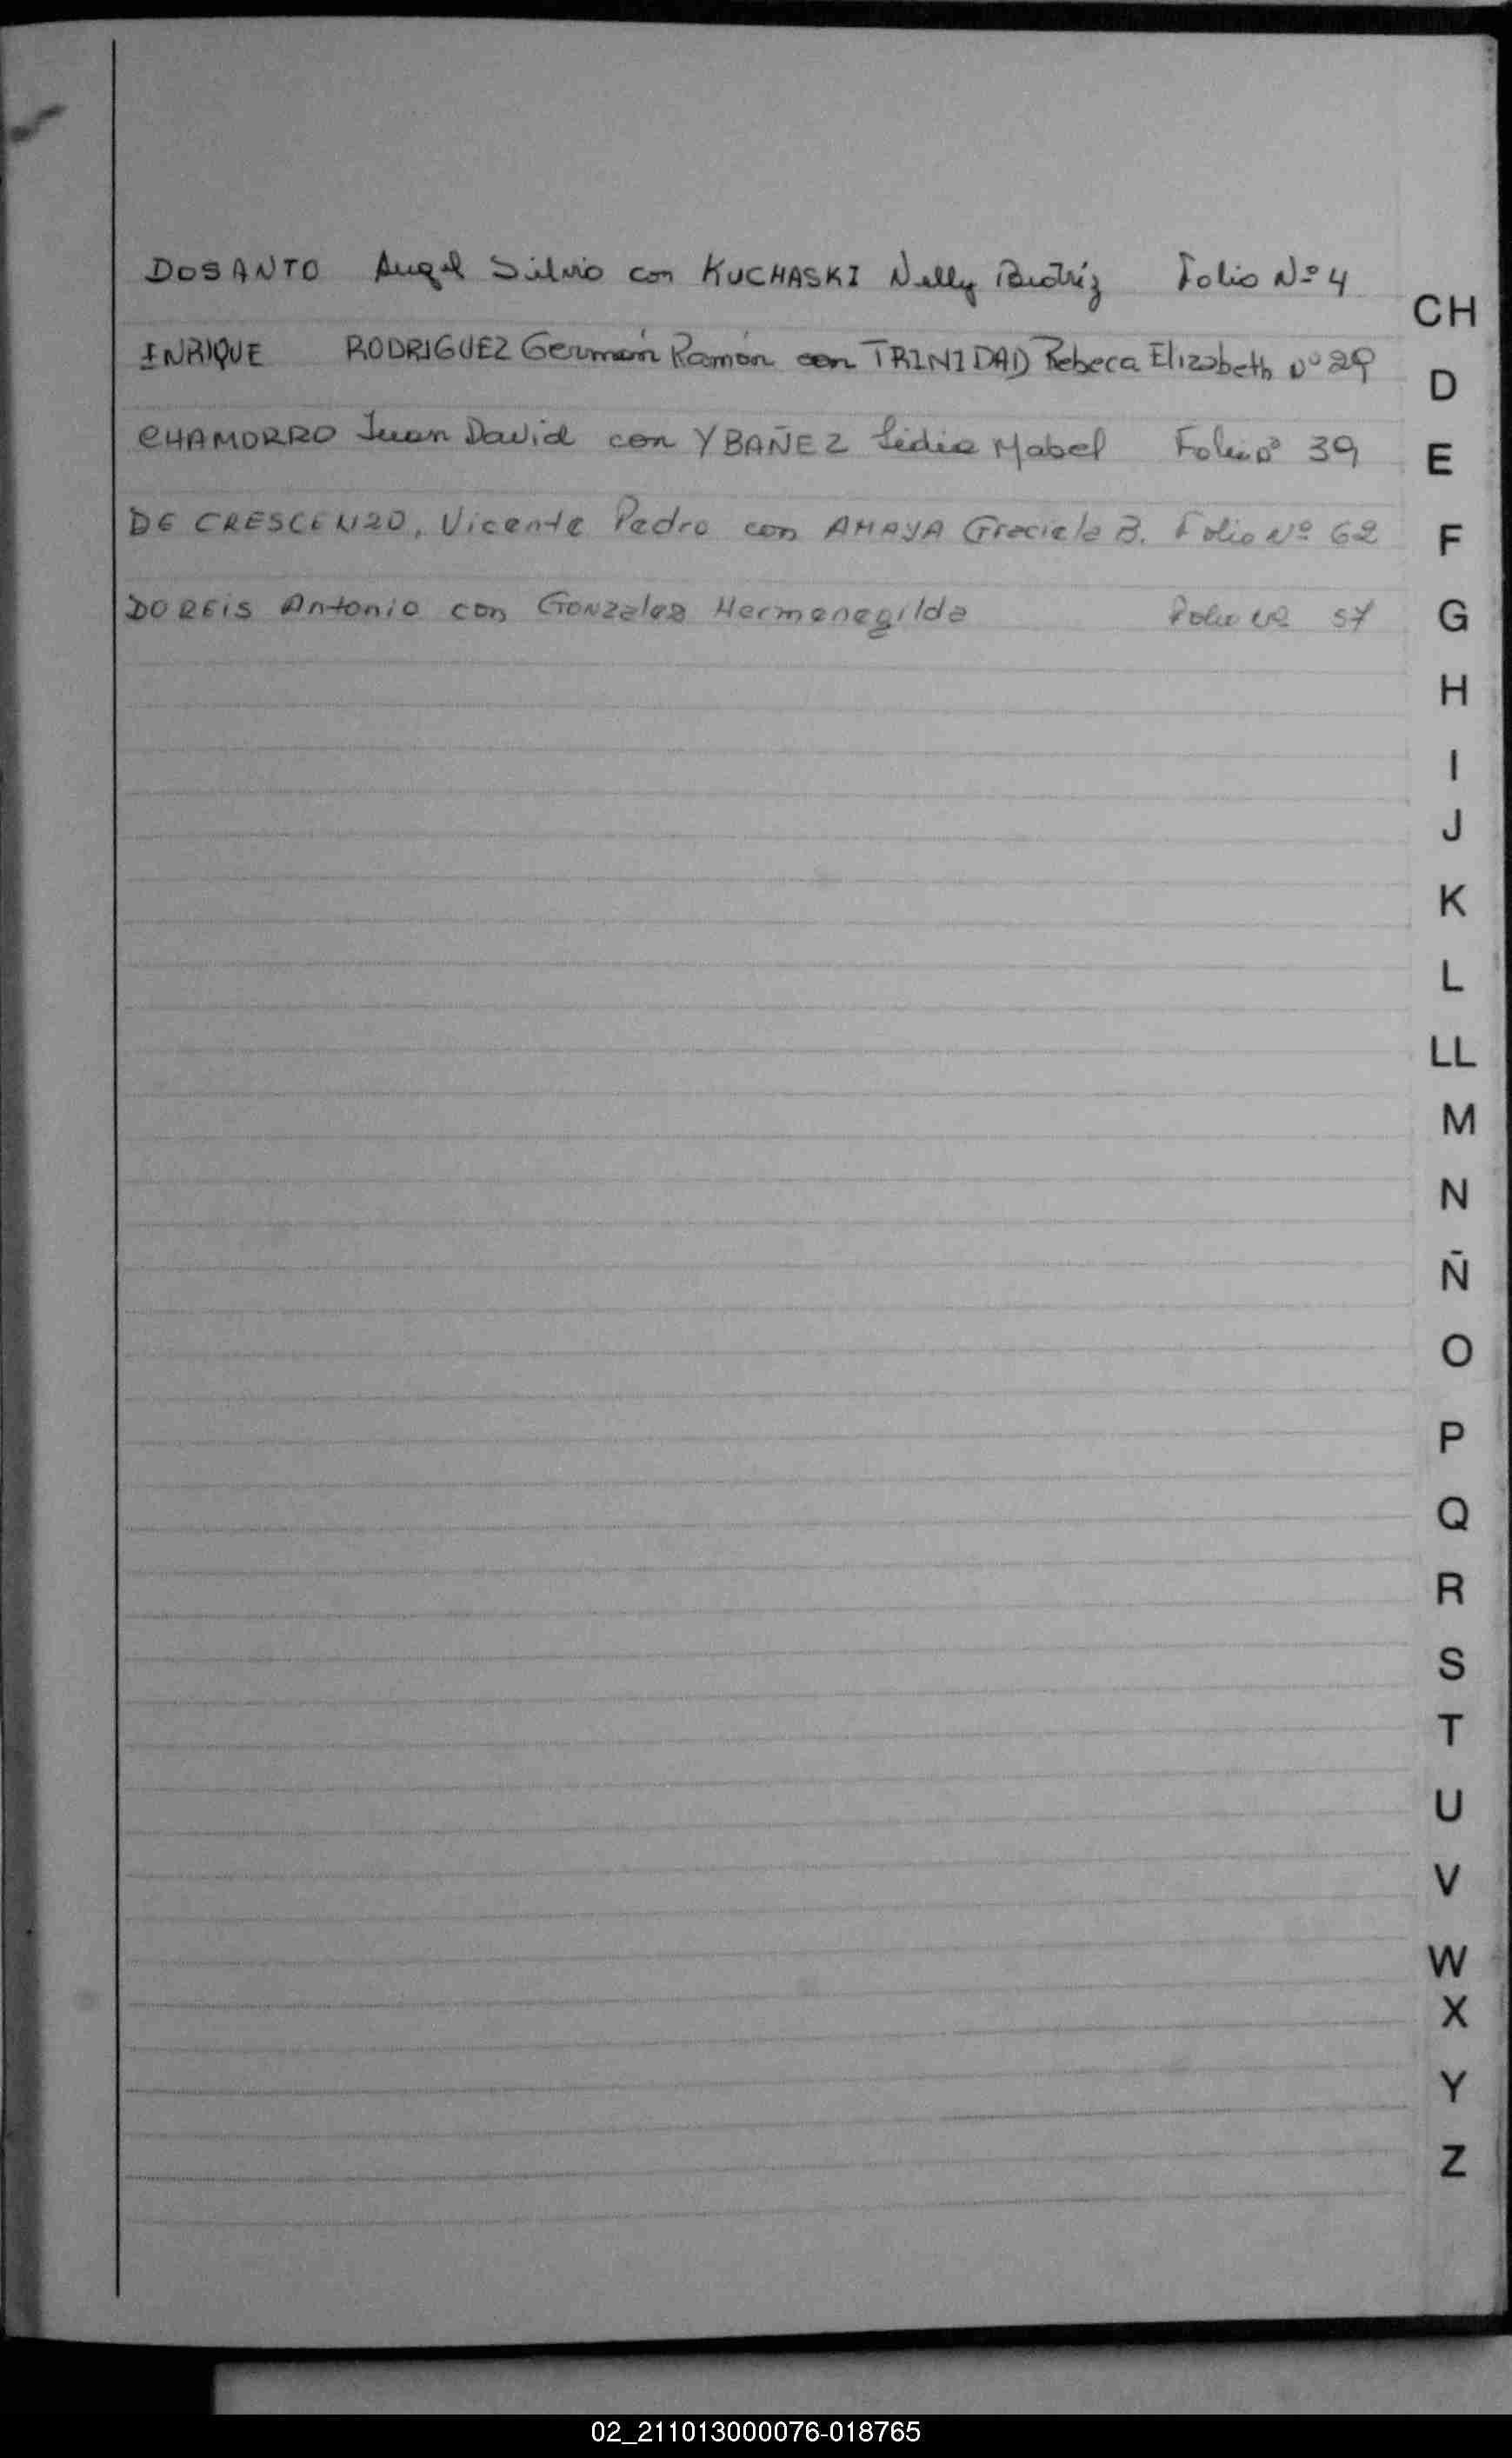 DOSANTO Angel Silvio con KUCHASKI Nelly Beatríz Folio Nº 4
CH
INRIQUE RODRIGUEZ Germán Ramón con TRINIDAD Rebeca Elizabeth Nº 29
D
CHAMORRO Juan David con YBAÑEZ Lidia Mabel Folio nº 39
E
DE CRESCENZO, Vicente Pedro con AMAYA Graciela B. Folio Nº 62
F
DO REIS Antonio con Gonzalez Hermenegilda Folio Nº 57
G
H
I
J
K
L
LL
M
N
Ñ
O
P
Q
R
S
T
U
V
W
X
Y
Z
02_211013000076-018765